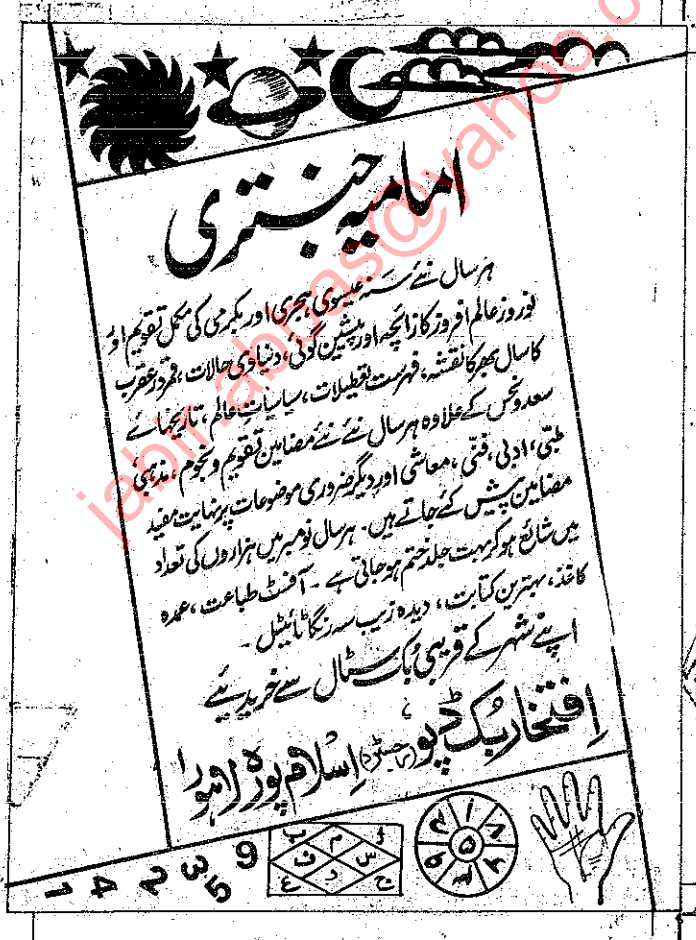 امامیہ جنتری
ہر سال نئے سنہ عیسوی ہجری اور بکرمی کی مکمل تقویم اور
نوروز عالم افروز کا زائچہ اور پیشین گوئی، دنیاوی حالات، قمر در عقرب
کا سال بھر کا نقشہ، فہرست تعطیلات، سیاسیات عالم، تاریخہائے
سعد و نحس کے علاوہ ہر سال نئے نئے مضامین تقویم و نجوم، مذہبی،
طبی، ادبی، فنی، معاشی اور دیگر ضروری موضوعات پر نہایت مفید
مضامین پیش کئے جاتے ہیں۔ ہر سال نومبر میں ہزاروں کی تعداد
میں شائع ہو کر بہت جلد ختم ہو جاتی ہے۔ آفسٹ طباعت، عمدہ
کاغذ، بہترین کتابت، دیدہ زیب سہ رنگا ٹائیٹل۔
اپنے شہر کے قریبی بک سٹال سے خریدیئے
افتخار بک ڈپو (رجسٹرڈ) اسلام پورہ لاہور
1 4 2 3 5 9
jabir.abbas@yahoo.co